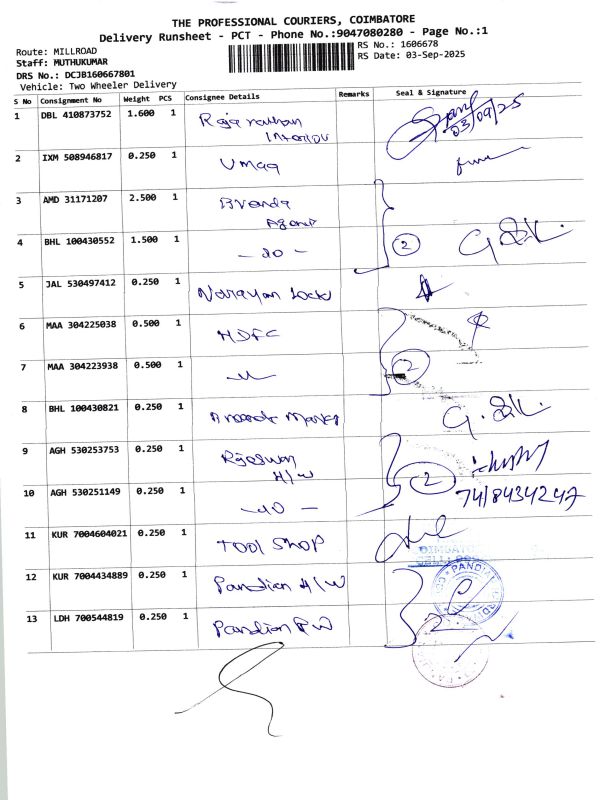 THE PROFESSIONAL COURIERS, COIMBATORE
Delivery Runsheet - PCT - Phone No.:9047080280 - Page No.:1
Route: MILLROAD
RS No.: 1606678
Staff: MUTHUKUMAR
RS Date: 03-Sep-2025
DRS No.: DCJB160667801
Vehicle: Two Wheeler Delivery
S No Consignment No Weight PCS Consignee Details Remarks Seal & Signature
1 DBL 410873752 1.600 1
03/09/25
2 IXM 508946817 0.250 1 Umaa
3 AMD 31171207 2.500 1
4 BHL 100430552 1.500 1 - do - 2
5 JAL 530497412 0.250 1 Narayan Lock
6 MAA 304225038 0.500 1 HDFC
7 MAA 304223938 0.500 1 2
8 BHL 100430821 0.250 1
9 AGH 530253753 0.250 1
H/W
10 AGH 530251149 0.250 1 - do - 2
11 KUR 7004604021 0.250 1 Tool Shop
12 KUR 7004434889 0.250 1 Pandian H/W
13 LDH 700544819 0.250 1 Pandian PW